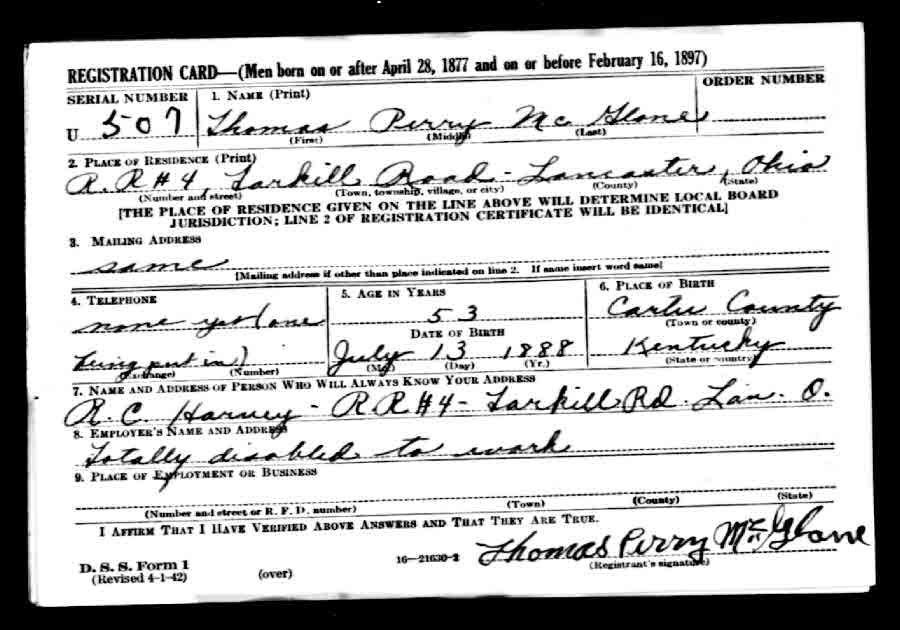 REGISTRATION CARD—(Men born on or after April 28, 1877 and on or before February 16, 1897)
SERIAL NUMBER
1. NAME (Print)
ORDER NUMBER
U 507
Thomas Perry Mc Glone
(First) (Middle) (Last)
2. PLACE OF RESIDENCE (Print)
R. R #4, Tarkill Road - Lancaster, Ohio
(Number and street) (Town, township, village, or city) (County) (State)
[THE PLACE OF RESIDENCE GIVEN ON THE LINE ABOVE WILL DETERMINE LOCAL BOARD
JURISDICTION; LINE 2 OF REGISTRATION CERTIFICATE WILL BE IDENTICAL]
3. MAILING ADDRESS
same
[Mailing address if other than place indicated on line 2. If same insert word same]
4. TELEPHONE
none yet (one
being put in)
(Exchange) (Number)
5. AGE IN YEARS
53
DATE OF BIRTH
July 13 1888
(Mo.) (Day) (Yr.)
6. PLACE OF BIRTH
Carter County
(Town or county)
Kentucky
(State or country)
7. NAME AND ADDRESS OF PERSON WHO WILL ALWAYS KNOW YOUR ADDRESS
R. C. Harney - R R #4 - Tarkill Rd. Lan. O.
8. EMPLOYER'S NAME AND ADDRESS
Totally disabled to work
9. PLACE OF EMPLOYMENT OR BUSINESS
(Number and street or R. F. D. number) (Town) (County) (State)
I AFFIRM THAT I HAVE VERIFIED ABOVE ANSWERS AND THAT THEY ARE TRUE.
D. S. S. Form 1
(Revised 4-1-42)
(over)
16—21630-2
Thomas Perry McGlone
(Registrant's signature)